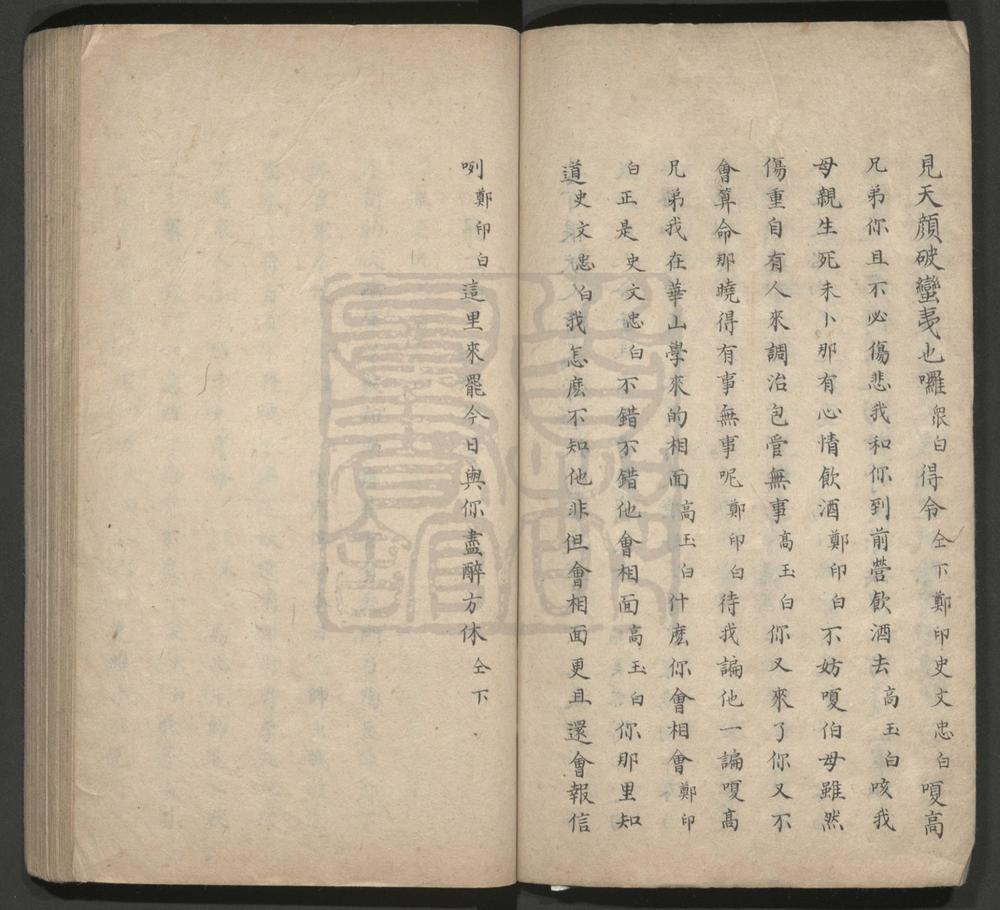 見天顏破蠻夷也囉衆白得令仝下鄭印史文忠白嗄高
兄弟你且不必傷悲我和你到前營飲酒去高玉白咳我
母親生死未卜那有心情飲酒鄭印白不妨嗄伯母雖然
傷重自有人來調治包管無事高玉白你又來了你又不
會算命那曉得有事無事呢鄭印白待我諞他一諞嗄高
兄弟我在華山學來的相面高玉白什庅你會相會鄭印
白正是史文忠白不錯不錯他會相面高玉白你那里知
道史文忠白我怎庅不知他非但會相面更且還會報信
咧鄭印白這里來罷今日與你盡醉方休仝下